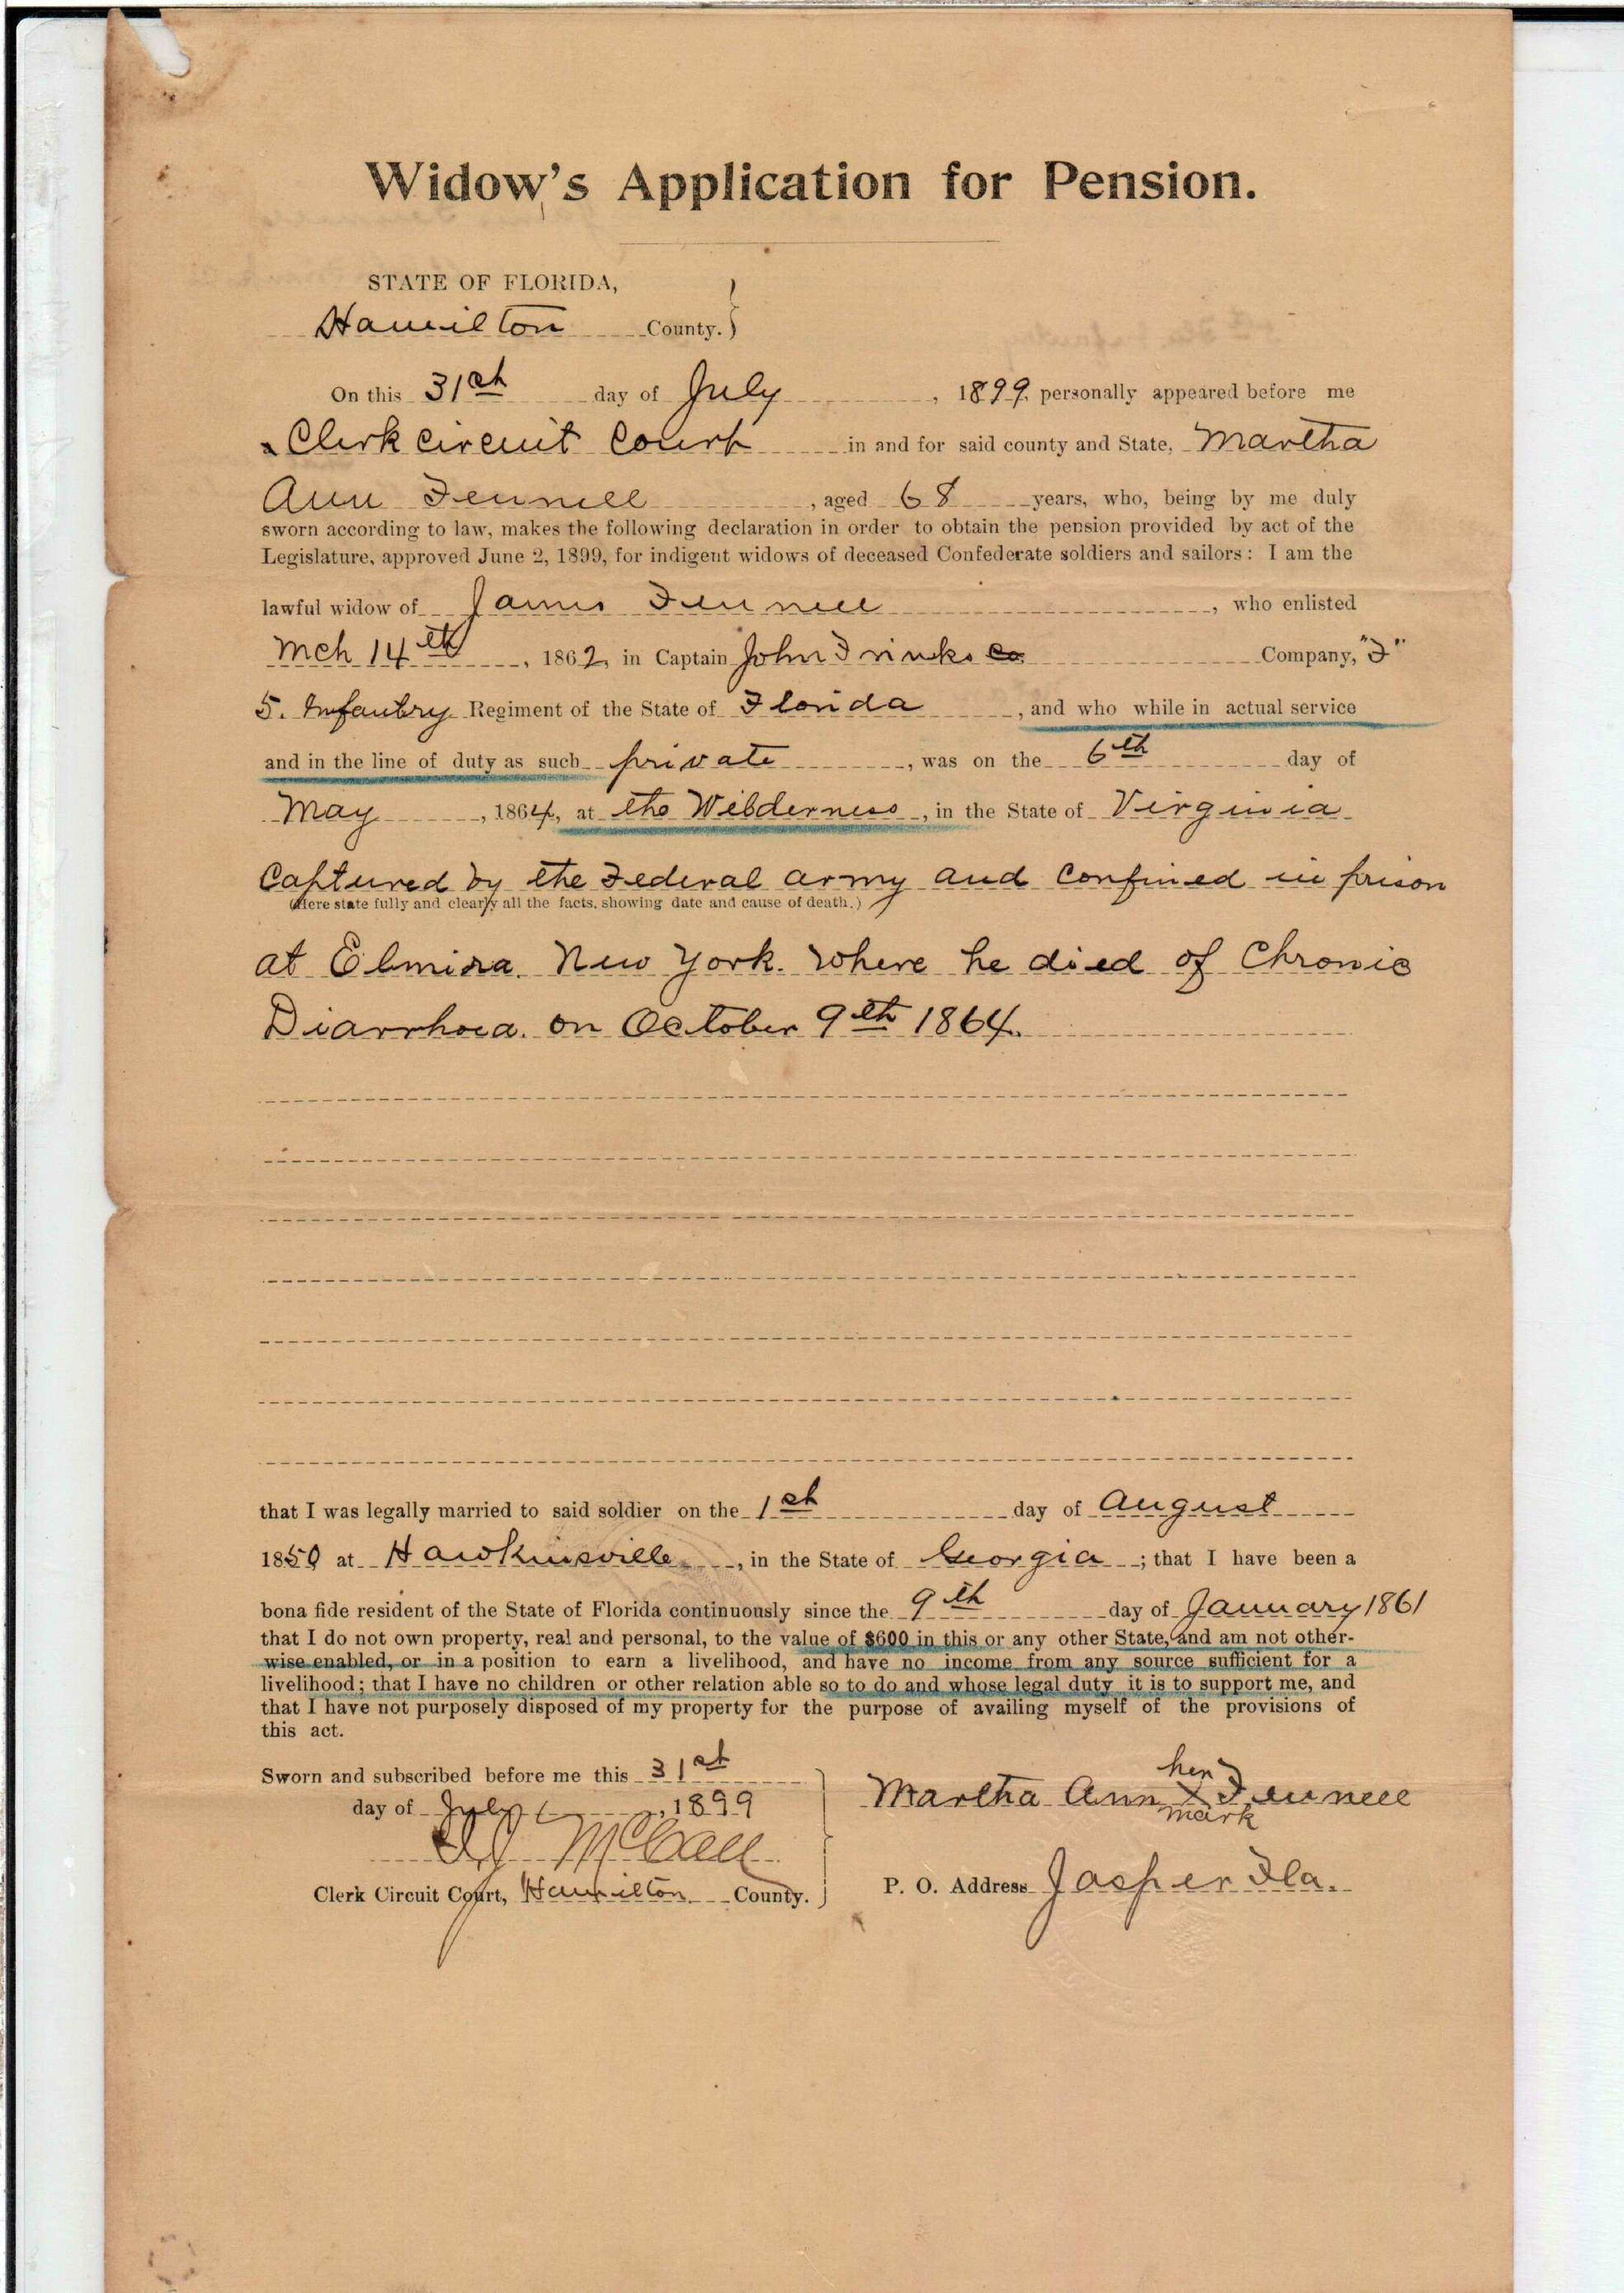 Widow's Application for Pension.
STATE OF FLORIDA,
Hamilton County.
On this 31st day of July, 1899, personally appeared before me
a Clerk circuit Court in and for said county and State, Martha
Ann Fennell, aged 68 years, who, being by me duly
sworn according to law, makes the following declaration in order to obtain the pension provided by act of the
Legislature, approved June 2, 1899, for indigent widows of deceased Confederate soldiers and sailors: I am the
lawful widow of James Fennell, who enlisted
Mch 14th, 1862, in Captain John Frinks Co Company, "F"
5. Infantry Regiment of the State of Florida, and who while in actual service
and in the line of duty as such private, was on the 6th day of
May, 1864, at the Wilderness, in the State of Virginia
Captured by the Federal army and confined in prison
(Here state fully and clearly all the facts, showing date and cause of death.)
at Elmira. New York. Where he died of Chronic
Diarrhoea. on October 9th 1864.
that I was legally married to said soldier on the 1st day of August
1850 at Hawkinsville, in the State of Georgia; that I have been a
bona fide resident of the State of Florida continuously since the 9th day of January 1861
that I do not own property, real and personal, to the value of $600 in this or any other State, and am not other-
wise enabled, or in a position to earn a livelihood, and have no income from any source sufficient for a
livelihood; that I have no children or other relation able so to do and whose legal duty it is to support me, and
that I have not purposely disposed of my property for the purpose of availing myself of the provisions of
this act.
Sworn and subscribed before me this 31st
day of July, 1899
McCall
Clerk Circuit Court, Hamilton County.
her
Martha Ann X Fennell
mark
P. O. Address Jasper Fla.